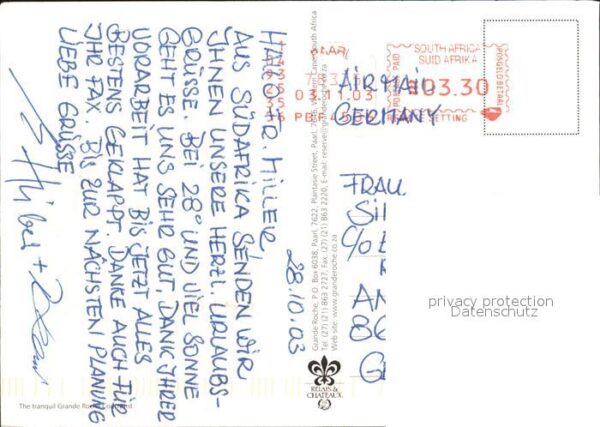 28.10.03
HALLO FR. MILLER
AUS SÜDAFRIKA SENDEN WIR
IHNEN UNSERE HERZL. URLAUBS-
GRÜSSE. BEI 28° UND VIEL SONNE
GEHT ES UNS SEHR GUT. DANK IHRER
VORARBEIT HAT BIS JETZT ALLES
BESTENS GEKLAPPT. DANKE AUCH FÜR
IHR FAX. BIS ZUR NÄCHSTEN PLANUNG
LIEBE GRÜSSE
Grande Roche, P.O. Box 6038, Paarl, 7622, Plantasie Street, Paarl, 7646, Western Cape, South Africa
Tel: (27) (21) 863 2727, Fax: (27) (21) 863 2220, E-mail: reserve@granderoche.co.za
Web site: www.granderoche.co.za
RELAIS &
CHATEAUX
The tranquil Grande Roche
PAARL
03.11.03
SOUTH AFRICA
SUID AFRIKA
POSGELD BETAAL
R03.30
AIRMAIL
GERMANY
FRAU
SIL
C/O
AN
86
GE
privacy protection
Datenschutz